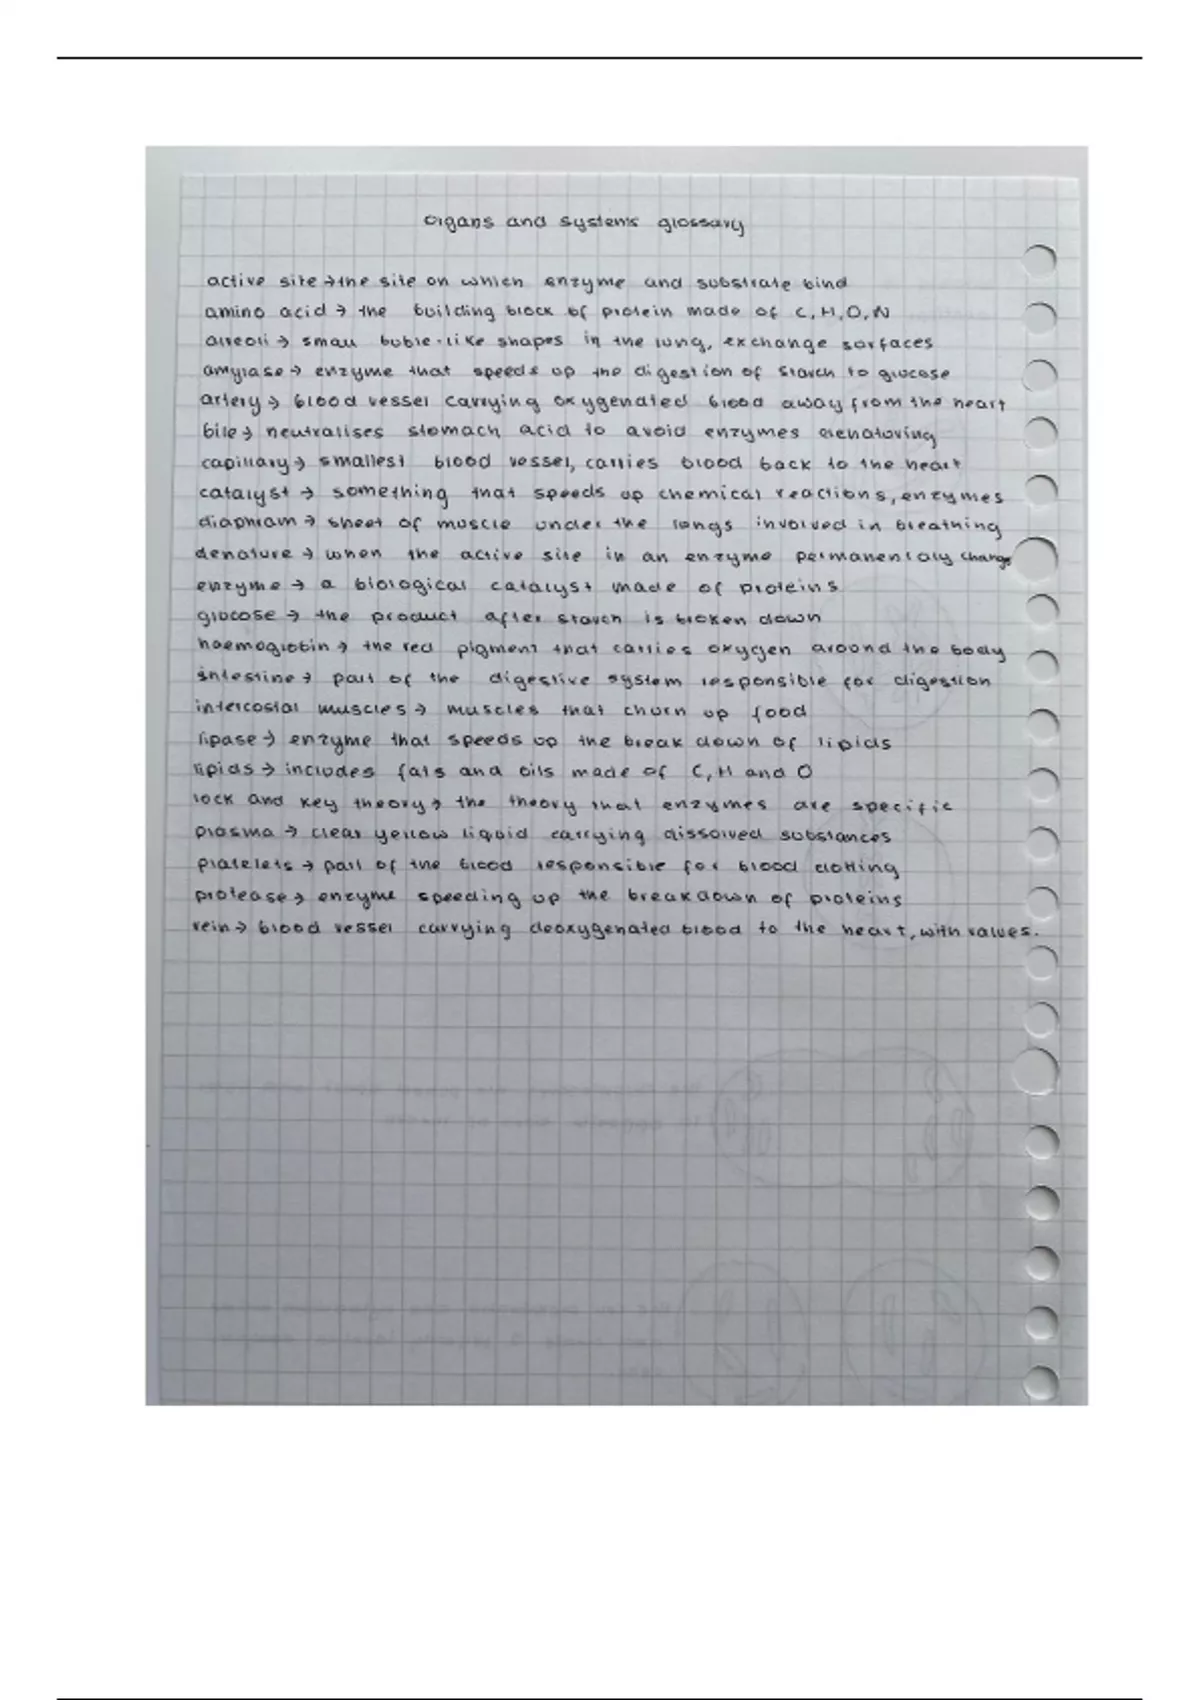 Organs and systems glossary
active site → the site on which enzyme and substrate bind
amino acid → the building block of protein made of C, H, O, N
alveoli → small buble-like shapes in the lung, exchange surfaces
amylase → enzyme that speeds up the digestion of starch to glucose
artery → blood vessel carrying oxygenated blood away from the heart
bile → neutralises stomach acid to avoid enzymes denaturing
capillary → smallest blood vessel, carries blood back to the heart
catalyst → something that speeds up chemical reactions, enzymes
diaphram → sheet of muscle under the lungs involved in breathing
denature → when the active site in an enzyme permanently change
enzyme → a biological catalyst made of proteins
glucose → the product after starch is broken down
haemoglobin → the red pigment that carries oxygen around the body
intestine → part of the digestive system responsible for digestion
intercostal muscles → muscles that churn up food
lipase → enzyme that speeds up the break down of lipids
lipids → includes fats and oils made of C, H and O
lock and key theory → the theory that enzymes are specific
plasma → clear yellow liquid carrying dissolved substances
platelets → part of the blood responsible for blood clotting
protease → enzyme speeding up the breakdown of proteins
vein → blood vessel carrying deoxygenated blood to the heart, with valves.